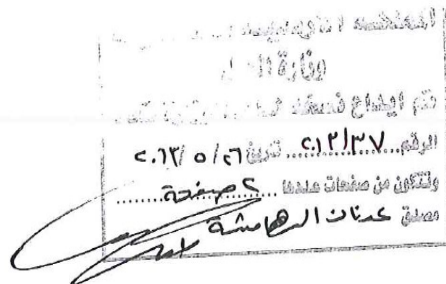 المملكة الأردنية
وزارة
تم ايداع نسخة
الرقم تاريخ ٢٠١٣/٥/٢٦
وتتكون من صفحات عددها ٢ صفحة
مصدق عدنان الدهامشة